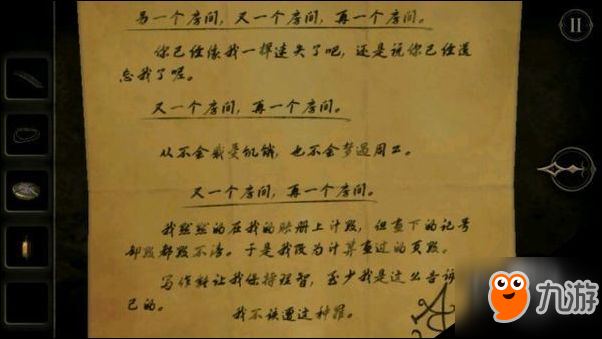 另一个房间，又一个房间，再一个房间。
你已经像我一样迷失了吧，还是说你已经遗
忘我了呢。
又一个房间，再一个房间。
从不会感受饥饿，也不会梦遇周工。
又一个房间，再一个房间。
我默默的在我的 册上计数，但查下的记号
都数都数不清。于是我改为计算查过的页数。
写作能让我保持理智，至少我是这么告诉
己的。
我不该遭这种罪。
九游